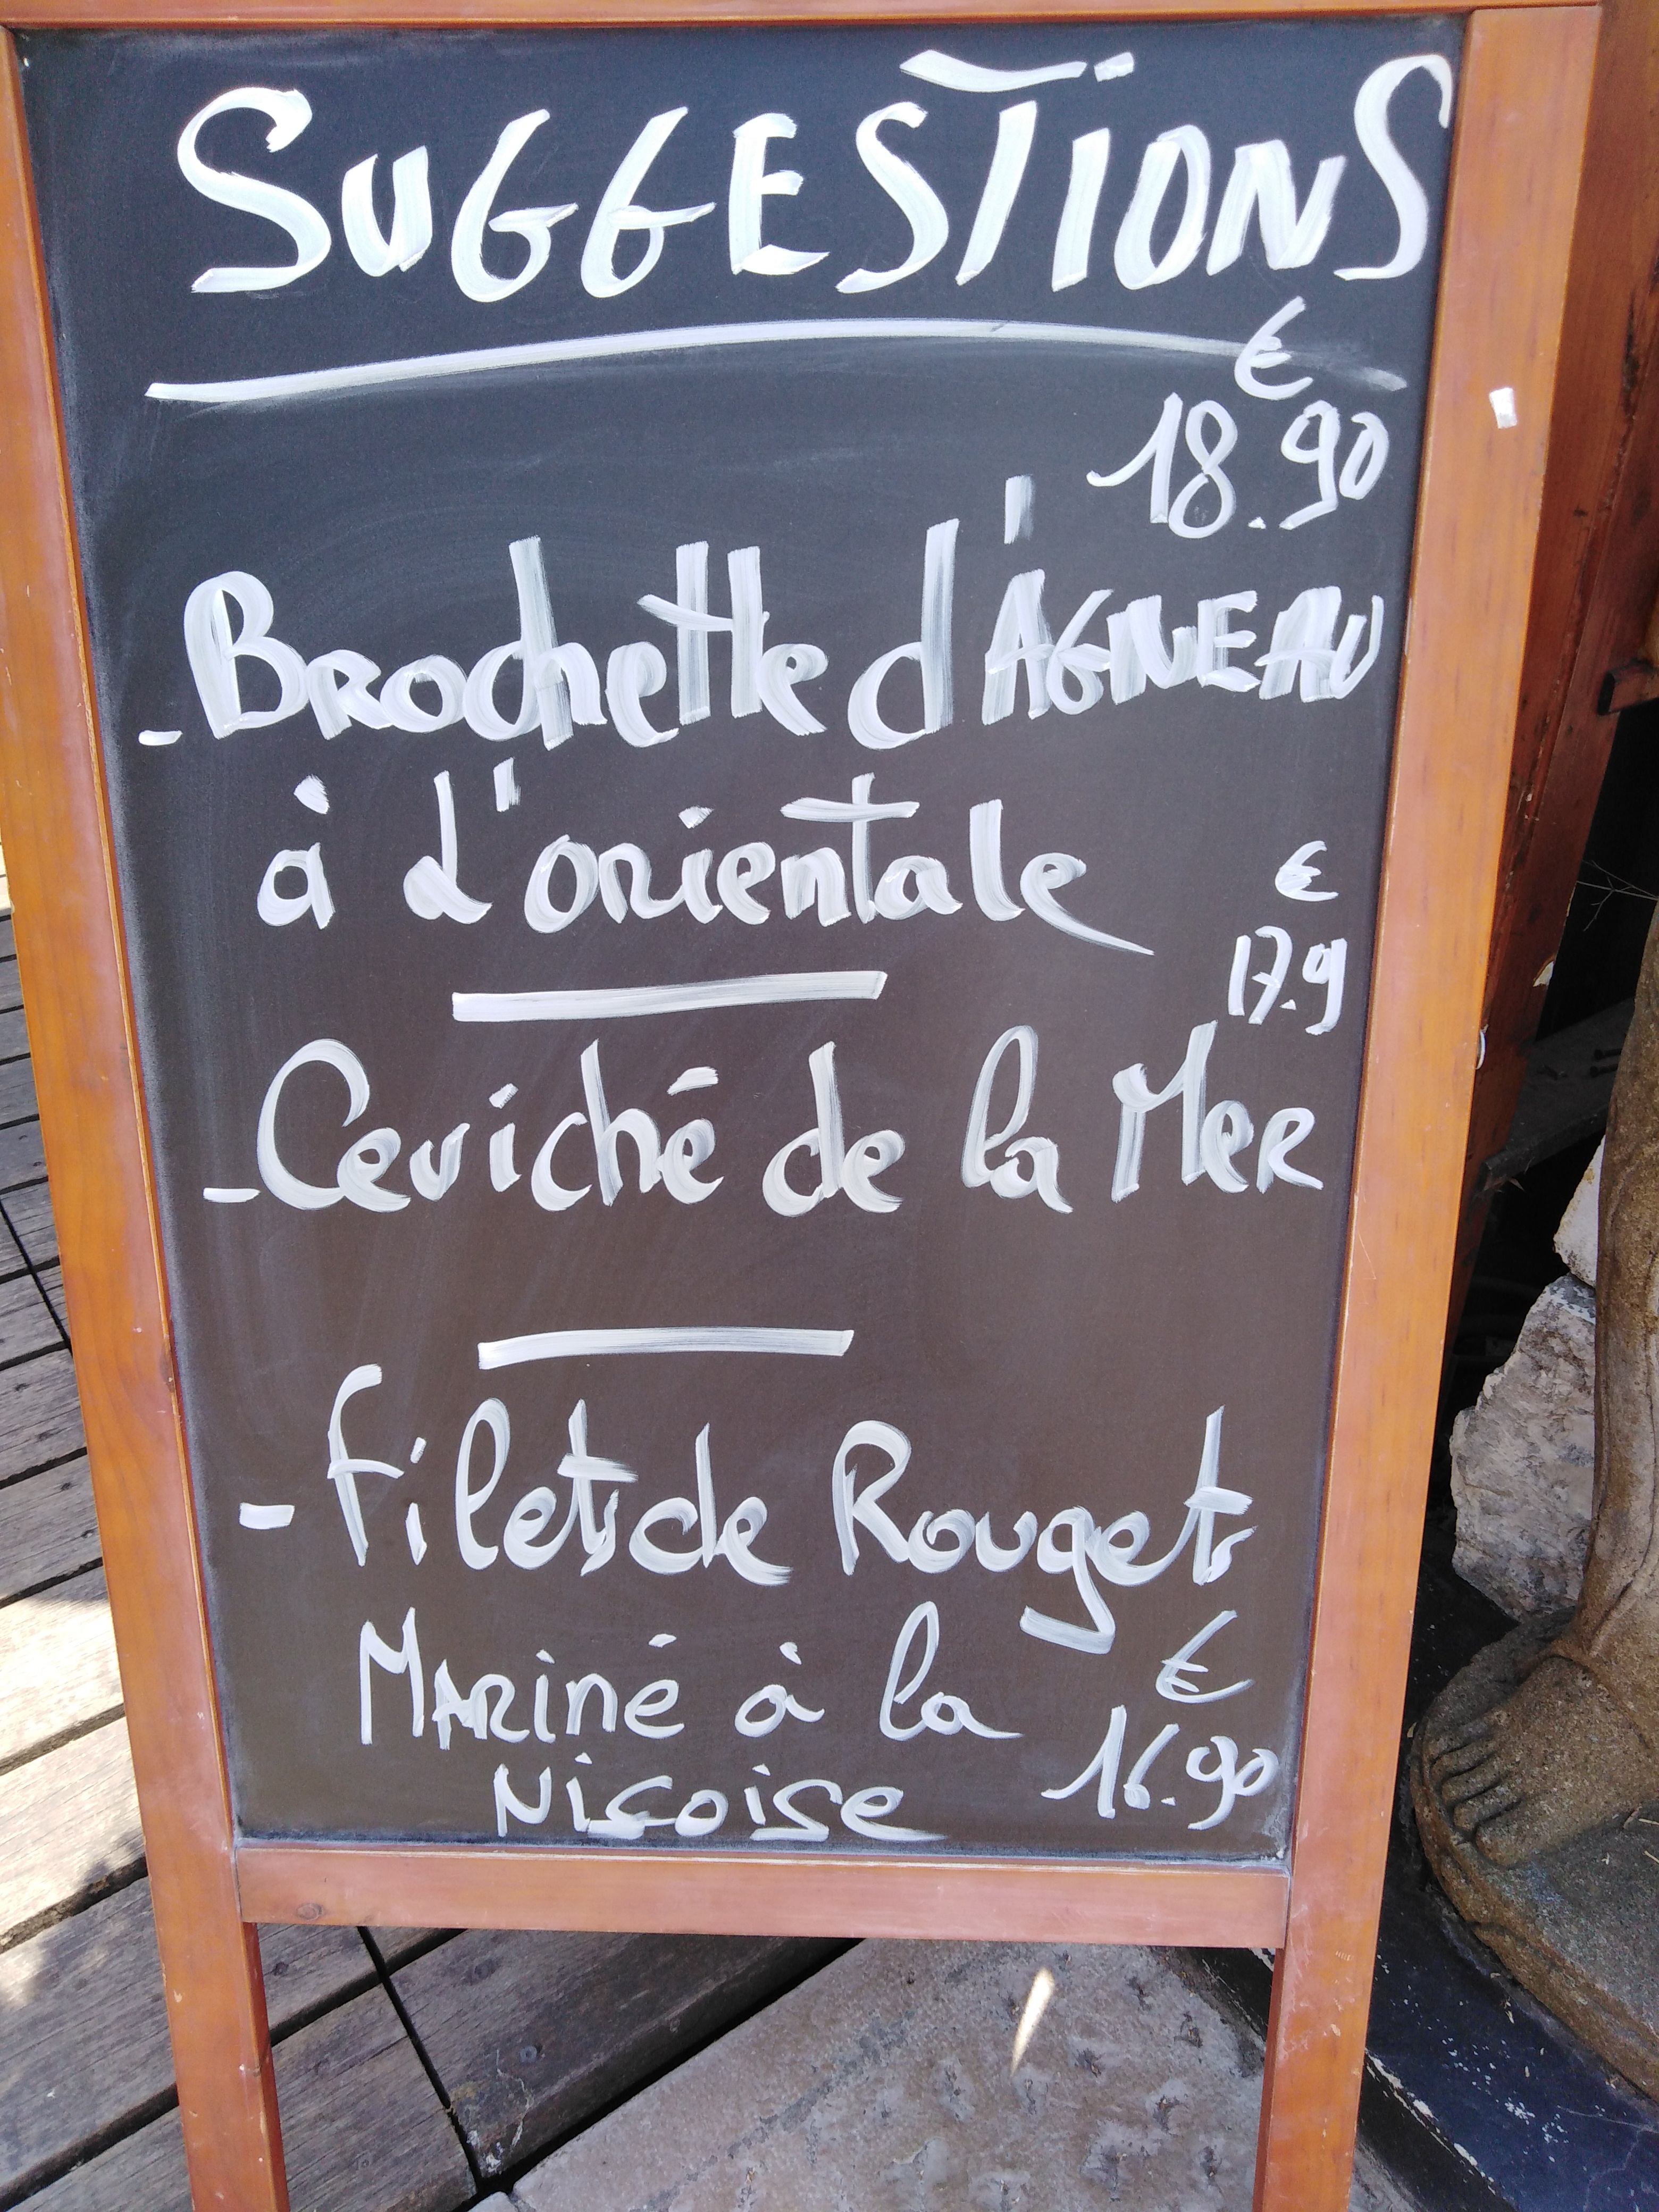 SUGGESTIONS
€
18.90
- Brochette d'AGNEAU
à l'orientale
€
17.9
- Ceviché de la Mer
- Filets de Rougets
Mariné à la
€
16.90
Niçoise